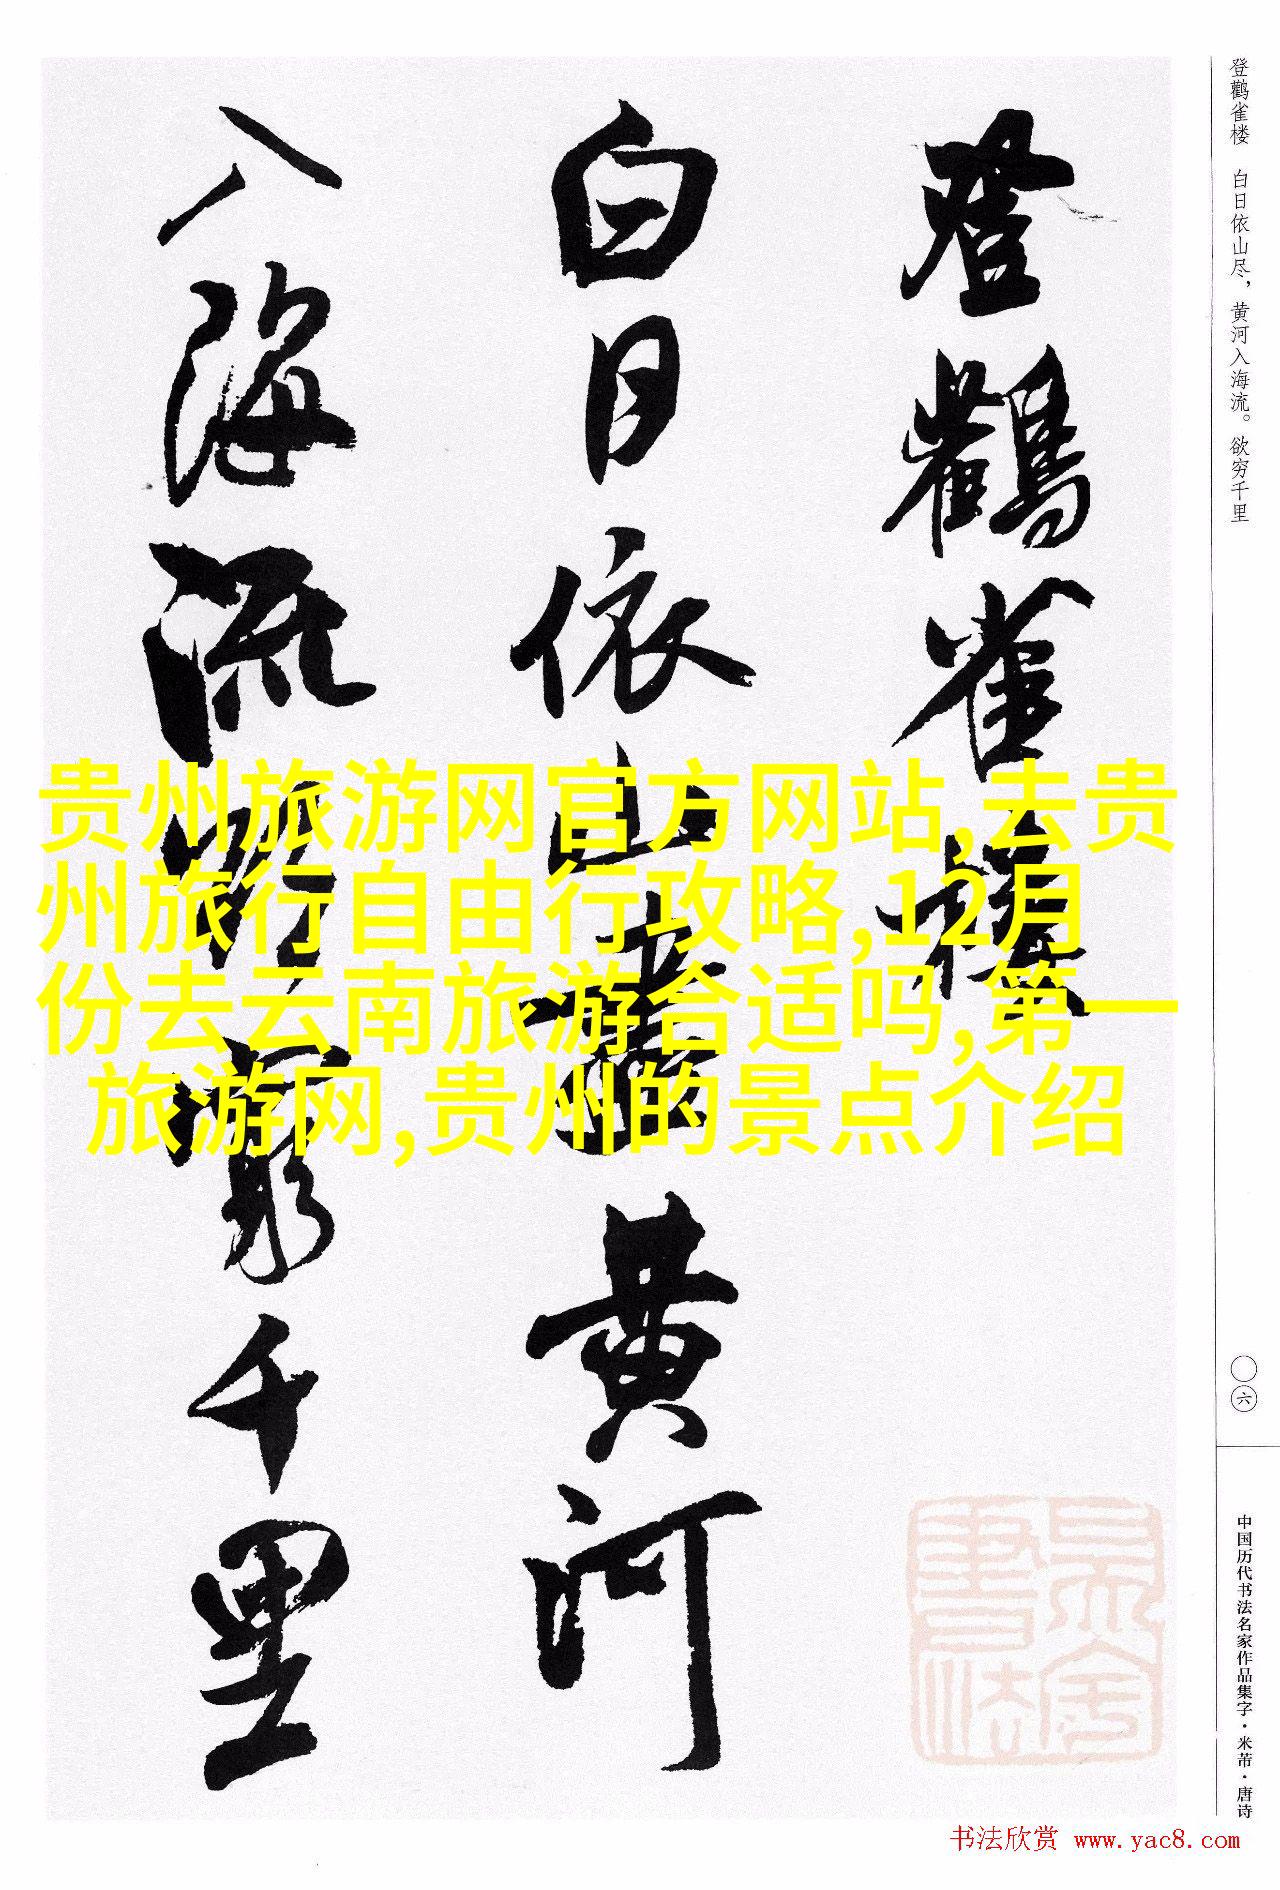 登鹳雀楼 白日依山尽，黄河入海流。欲穷千里
登鸛雀樓
白日依山盡黄河
入海流欲窮千里
贵州旅游网官方网站,去贵
州旅行自由行攻略,12月
份去云南旅游合适吗,第一
旅游网,贵州的景点介绍
〇六
中国历代书法名家作品集字·米芾·唐诗
书法欣赏 www.yac8.com